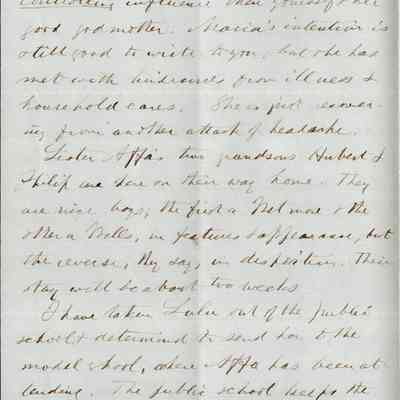 controlling influence than yourself &
good godmother. Maria's intention is
still good to write to you, but she has
met with hindrances from illness &
household cares. She is just recover-
ing from another attack of headache.
Sister Affa's two grandsons Hubert &
Philip are here on their way home. They
are nice boys, the first a Wetmore & the
other a Bolles, in features & appearance, but
the reverse, they say, in disposition. Their
stay will be about two weeks
I have taken Lulu out of the public
school & determined to send her to the
model school, where Affa has been at-
tending. The public school keeps the